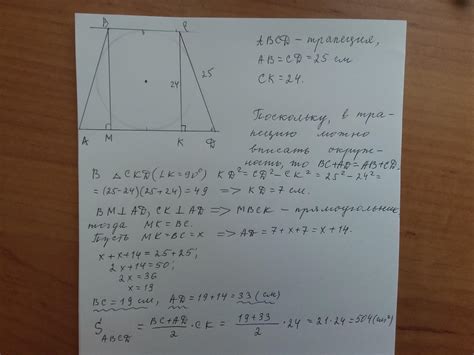 B
C
24
25
A
M
K
D
ABCD - трапеция,
AB = CD = 25 см
CK = 24.
Поскольку, в тра-
пецию можно
вписать окруж-
ность, то BC+AD=AB+CD.
В △CKD (∠K=90°) KD²=CD²-CK²=25²-24²=
=(25-24)(25+24)=49 => KD=7 см.
BM⊥AD, CK⊥AD => MBCK - прямоугольник,
тогда MK=BC.
Пусть MK=BC=x => AD=7+x+7=x+14.
x+x+14=25+25;
2x+14=50;
2x=36
x=19
BC=19 см, AD=19+14=33(см)
S ABCD = BC+AD/2 · CK = 19+33/2 · 24 = 21·24=504(см²)